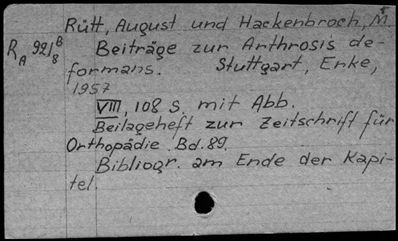 Rütt, August und Hackenbroch, M.
R_A 921/8 B Beiträge zur Arthrosis de-
formans. Stuttgart, Enke,
1957
VIII, 108 S. mit Abb.
Beilageheft zur Zeitschrift für
Orthopädie. Bd. 89.
Bibliogr. am Ende der Kapi-
tel.